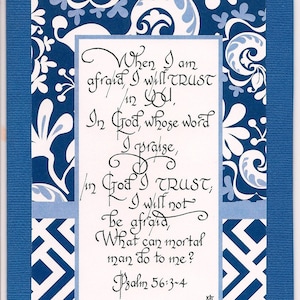 When I am
afraid I will TRUST
in YOU.
In God, whose word
I praise,
in God I TRUST;
I will not
be afraid,
What can mortal
man do to me?
Psalm 56:3-4